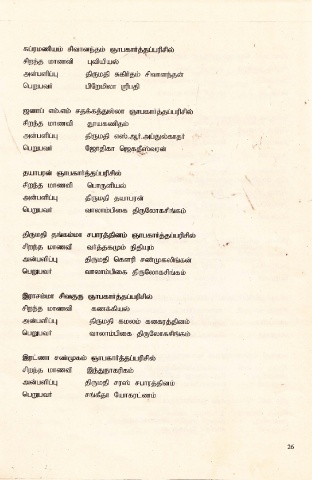 சுப்ரமணியம் சிவானந்தம் ஞாபகார்த்தப்பரிசில்
சிறந்த மாணவி புவியியல்
அன்பளிப்பு திருமதி சுகிர்தம் சிவானந்தன்
பெறுபவர் பிறேமிலா ஸ்ரீபதி
ஜனாப் எம்.எம் சதக்கத்துல்லா ஞாபகார்த்தப்பரிசில்
சிறந்த மாணவி தூயகணிதம்
அன்பளிப்பு திருமதி எஸ்.ஆர்.அப்துல்காதர்
பெறுபவர் ஜோதிகா ஜெகதீஸ்வரன்
தயாபரன் ஞாபகார்த்தப்பரிசில்
சிறந்த மாணவி பொருளியல்
அன்பளிப்பு திருமதி தயாபரன்
பெறுபவர் வாலாம்பிகை திருலோகசிங்கம்
திருமதி தங்கம்மா சபாரத்தினம் ஞாபகார்த்தப்பரிசில்
சிறந்த மாணவி வர்த்தகமும் நிதியும்
அன்பளிப்பு திருமதி கௌரி சண்முகலிங்கன்
பெறுபவர் வாலாம்பிகை திருலோகசிங்கம்
இராசம்மா சிவகுரு ஞாபகார்த்தப்பரிசில்
சிறந்த மாணவி கணக்கியல்
அன்பளிப்பு திருமதி கமலம் கனகரத்தினம்
பெறுபவர் வாலாம்பிகை திருலோகசிங்கம்
இரட்ணா சண்முகம் ஞாபகார்த்தப்பரிசில்
சிறந்த மாணவி இந்துநாகரிகம்
அன்பளிப்பு திருமதி சரஸ் சபாரத்தினம்
பெறுபவர் சங்கீதா யோகரட்ணம்
26